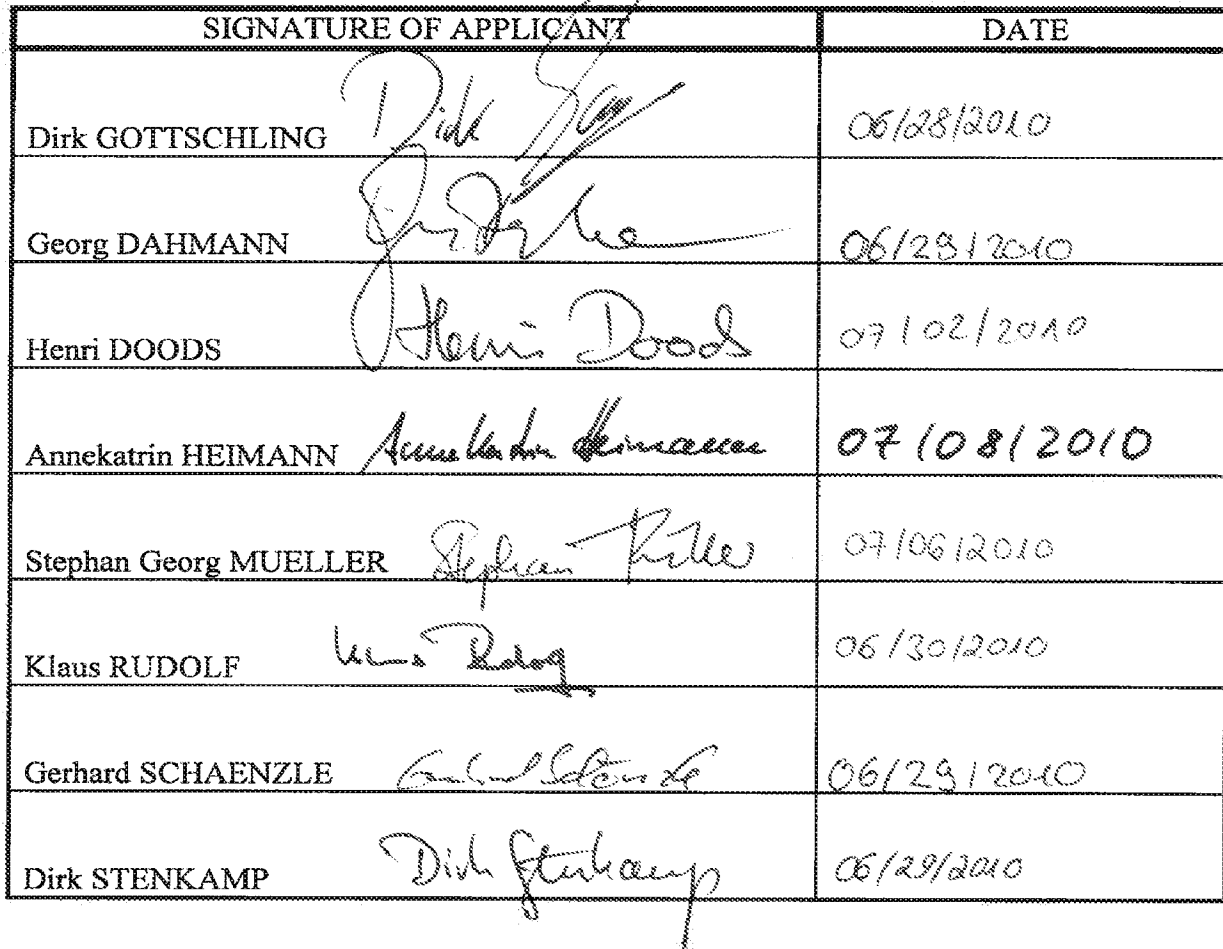 SIGNATURE OF APPLICANT DATE
Dirk GOTTSCHLING Dirk 06/28/2010
Georg DAHMANN 06/29/2010
Henri DOODS Henri Doods 07/02/2010
Annekatrin HEIMANN Annekatrin Heimann 07/08/2010
Stephan Georg MUELLER Stephan Müller 07/06/2010
Klaus RUDOLF Klaus Rudolf 06/30/2010
Gerhard SCHAENZLE Gerhard Schänzle 06/29/2010
Dirk STENKAMP Dirk Stenkamp 06/29/2010